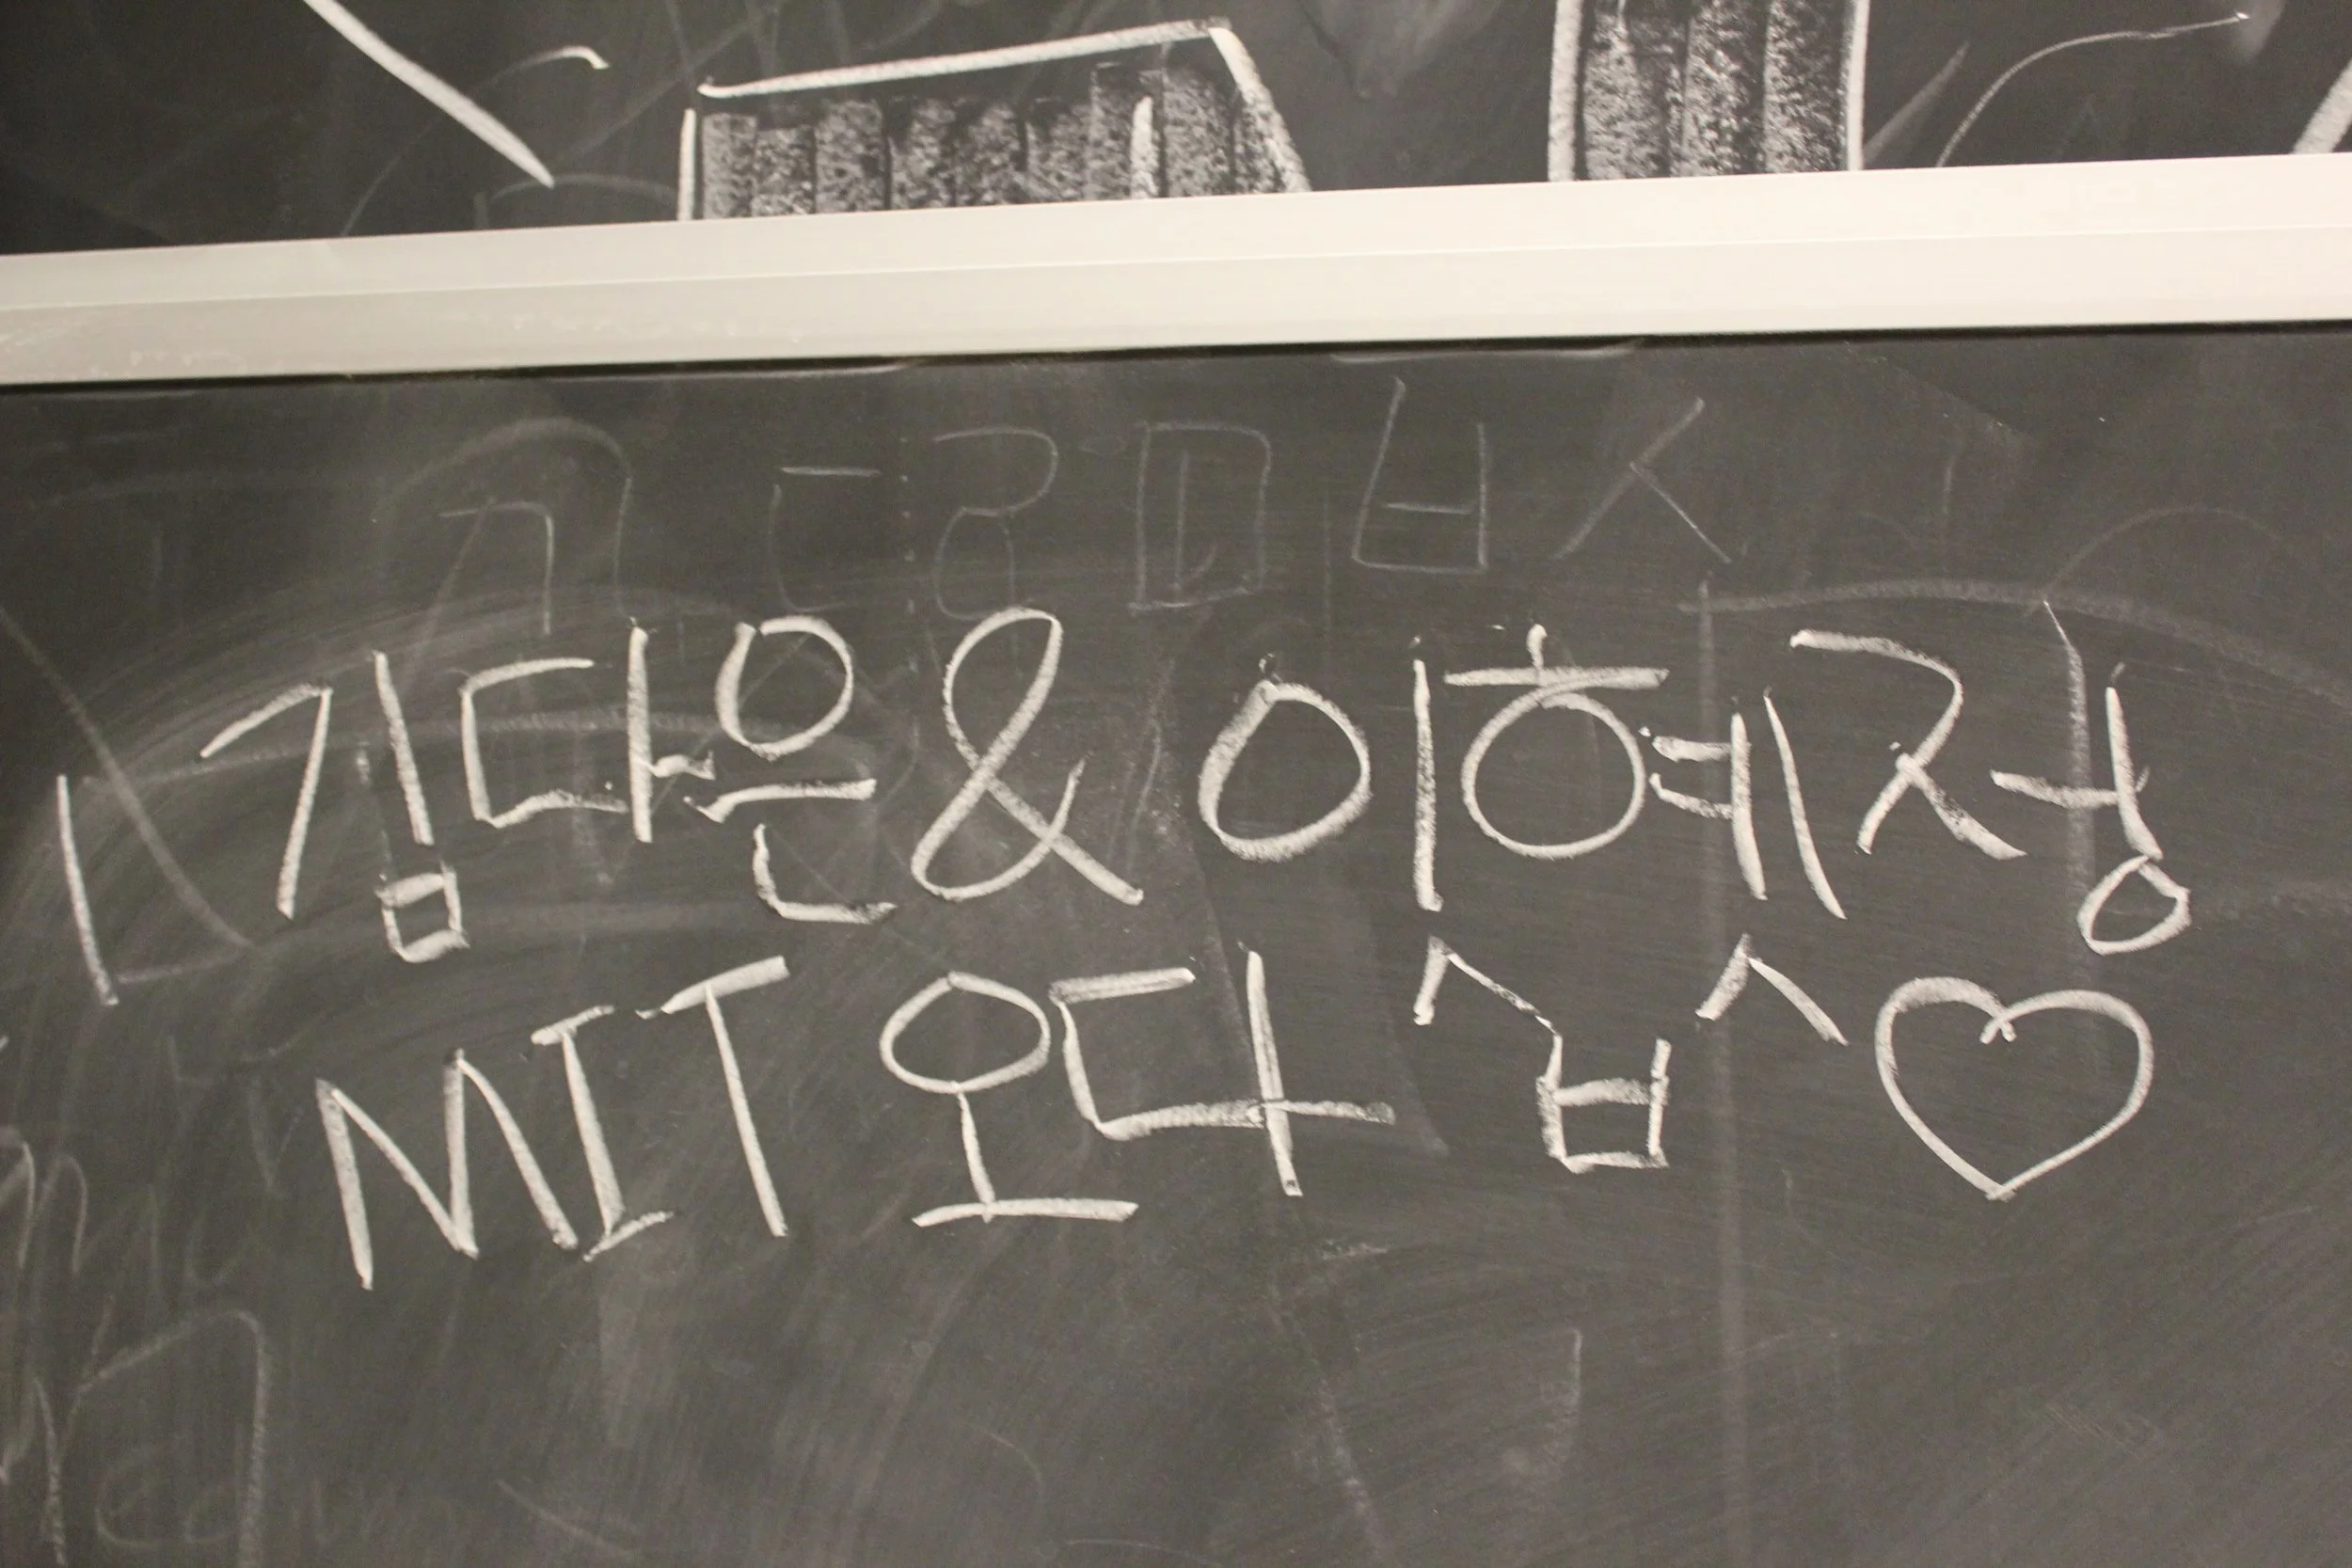 김다은 & 이혜정
MIT 오다 ^ㅂ^ ♡